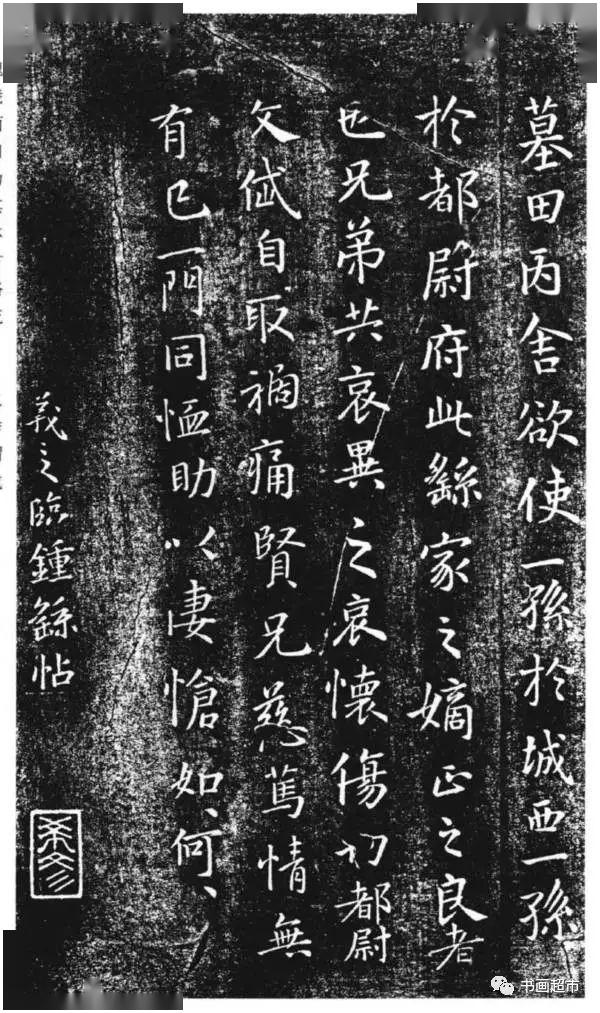 墓田丙舍欲使一孫於城西一孫
於都尉府此繇家之嫡正之良者
也兄弟共哀異之哀懷傷切都尉
文岱自取禍痛賢兄慈篤情無
有已一門同恤助以凄愴如、何、
羲之臨鍾繇帖
书画超市